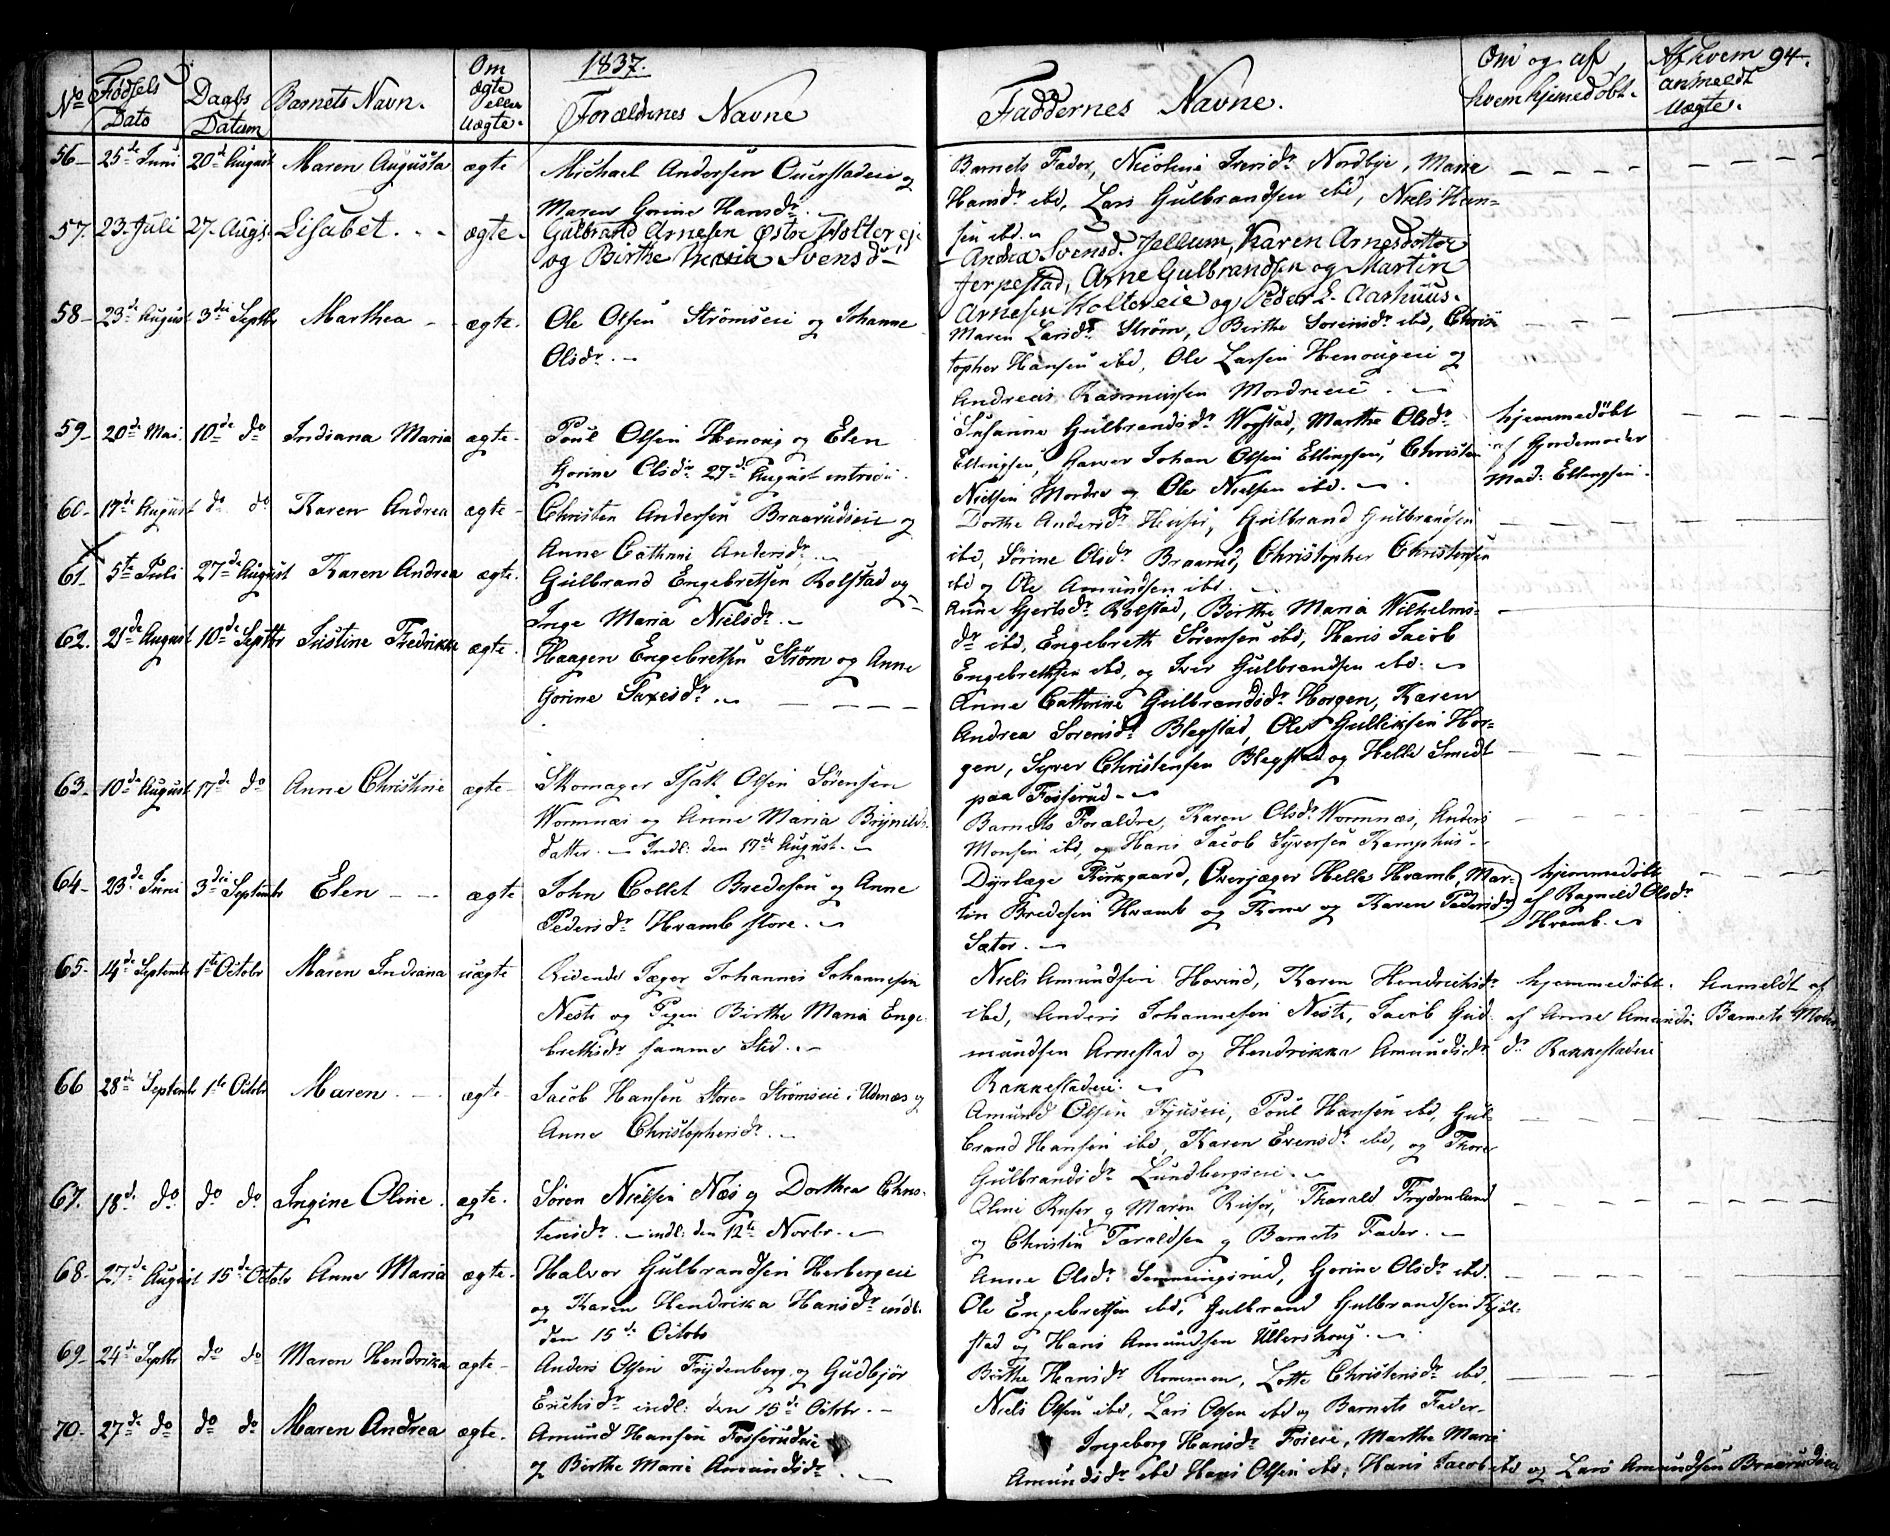 1837.
94.
No
Fødsels Dato
Daabs Datum
Barnets Navn.
Om ægte eller uægte.
Forældrenes Navne
Faddernes Navne.
Om og af hvem hjemedøbt.
Af hvem anmeldt Uægte.
56 25de Juni 20de August Maren Augusta ægte
Michael Andersen og
Maren Gorine Hansdr.
Barnets Fader, Nicoline Iversdr Nordbye, Marie
Hansdr ibd, Lars Gulbrandsen ibd, Niels Han-
sen ibd.
57. 23 Juli 27. Augs. Lisabet. ægte
Gulbrand Arnesen Østre Holtereie
og Birthe Maria Svensd.
Andrea Svensd. Jellum, Karen Arnesdotter
Jerpestad, Arne Gulbrandsen og Martin
Arnesen Holtereie og Peder E. Aashuus.
58 23de August 3die Septbr Marthea ægte.
Ole Olsen Strømseie og Johanne
Olsdr.
Maren Larsdr Strøm, Birthe Sørensdr ibd, Chris
topher Hansen ibd, Ole Larsen Henougeie og
Andreas Rasmussen Mordreeie
59 20de Mai 10de do Indiana Maria ægte
Poul Olsen Henoug og Elen
Gorine Olsdr 27de August introd.
Susanne Gulbrandsdr Wogstad, Marthe Olsdr
Ellingsen, Garver Johan Olsen Ellingsen, Christen
Nielsen Mordre og Ole Nielsen ibd.
hjemmedøbt
af Gjordemoder
Mad: Ellingsen.
60 17de August do do Karen Andrea ægte
Christen Andersen Braarudeie og
Anne Cathrine Andersdr.
Dorthe Andersdr Huser, Gulbrand Gulbrandsen
ibd, Sørine Olsdr Braarud, Christopher Christensen
ibd og Ole Amundsen ibd.
61. 5te Juli 27de August Karen Andrea ægte.
Gulbrand Engebretsen Rolstad og
Inge Maria Nielsdr.
Anne Gjertsdr Rolstad, Birthe Maria Wilhelms-
dr ibd, Engebreth Sørensen ibd, Hans Jacob
Engebretsen ibd, og Iver Gulbrandsen ibd.
62. 21de August 10de Septbr Justine Fredrikke ægte.
Haagen Engebretsen Strøm og Anne
Gorine Saxesdr.
Anne Cathrine Gulbrandsdr Horgen, Karen
Andrea Sørensdr Blegstad, Ole Gulliksen Hor-
gen, Syver Christensen Blegstad og Helle Smedt
paa Fosserud
63 10de August 17de do Anne Christine ægte
Skomager Isak Olsen Sørensen
Wormnæs og Anne Maria Brynilds-
datter. Indl: den 17de August.
Barnets Forældre, Karen Olsdr Wormnæs, Anders
Monsen ibd, og Hans Jacob Syversen Kamphus
64 23de Juni 3die Septembr Elen ægte
John Collet Bredesen og Anne
Pedersdr Hvamb store.
Dyrlæge Kirkgaard, Overjæger Helle Hvamb, Mar-
tin Bredesen Hvamb og Kone og Karen Pedersdr
Sæter.
hjemmedøbt
af Ragnild Olsdr
Hvamb.
65 14de Septembr 1ste Octobr Maren Indiana uægte
Ridende Jæger Johannes Johannesen
Neste og Pigen Birthe Maria Enge-
bretsdr samme Sted.
Niels Amundsen Hovind, Karen Hendriksdr
ibd, Anders Johannesen Neste, Jacob Gud-
mundsen Arnestad og Hendrikka Amundsdr
Rakkestadeie.
hjemmedøbt.
af Anne Amunds
dr Rakkestadeie
Anmeldt af
Barnets Moder
66 28de Septembr 1ste Octobr Maren ægte
Jacob Hansen Store Strømseie i Udenæs og
Anne Christophersdr.
Amund Olsen Fryuseie, Poul Hansen ibd, Gul-
brand Hansen ibd, Karen Evensdr ibd, og Thore
Gulbrandsdr Lundbergseie.
67. 18de do do do Ingine Oline. ægte.
Søren Nielsen Næs og Dorthea Chris-
tensdr. indl: den 12te Novbr.
Oline Ruser og Maren Ruser, Tharald Frydenlund
og Christen Taraldsen og Barnets Fader.
68. 27de August 15de Octobr Anne Maria ægte.
Halvor Gulbrandsen Herbergeie
og Karen Hendrika Hansdr indl:
den 15de Octobr
Anne Olsdr Semmingsrud, Gorine Olsdr ibd.
Ole Engebretsen ibd, Gulbrand Gulbrandsen Kjøl-
stad og Hans Amundsen Ullershoug.
69 24de Septbr do do Maren Hendrika ægte
Anders Olsen Frydenberg og Gudbjør
Erichsdr indl: den 15de Octobr.
Birthe Hansdr Rommen, Lotte Christensdr ibd,
Niels Olsen ibd, Lars Olsen ibd og Barnets Fader
70 27de do do do Maren Andrea ægte.
Amund Hansen Fosserudeie
og Birthe Marie Amundsdr.
Ingeborg Hansdr Foseie, Marthe Marie
Amundsdr ibd Hans Olsen ibd, Hans Jacob ibd og Lars Amundsen Braarudeie